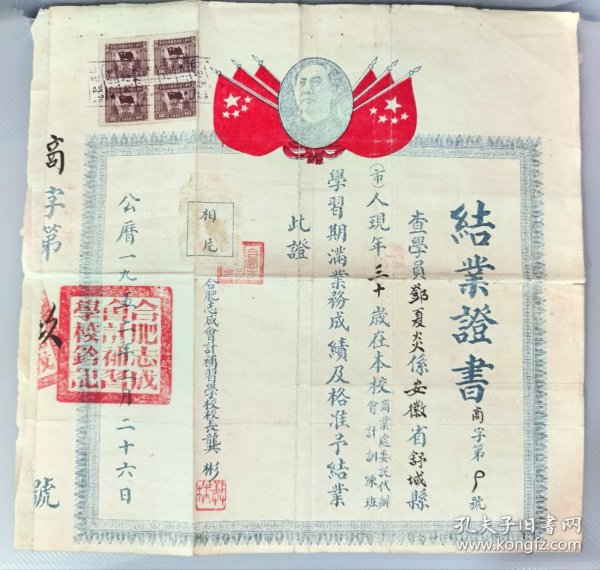 結業證書
商字第 9 號
查學員鄧夏炎係安徽省舒城縣
(市)人現年三十歲在本校商業處委託代辦會計訓練班
學習期滿業務成績及格准予結業
此證
相片
合肥志成會計補習學校校長龔彬
公曆一九五
月二十六日
合肥志成
會計補習
學校鈐記
商字第
號
孔夫子旧书网
www.kongfz.com